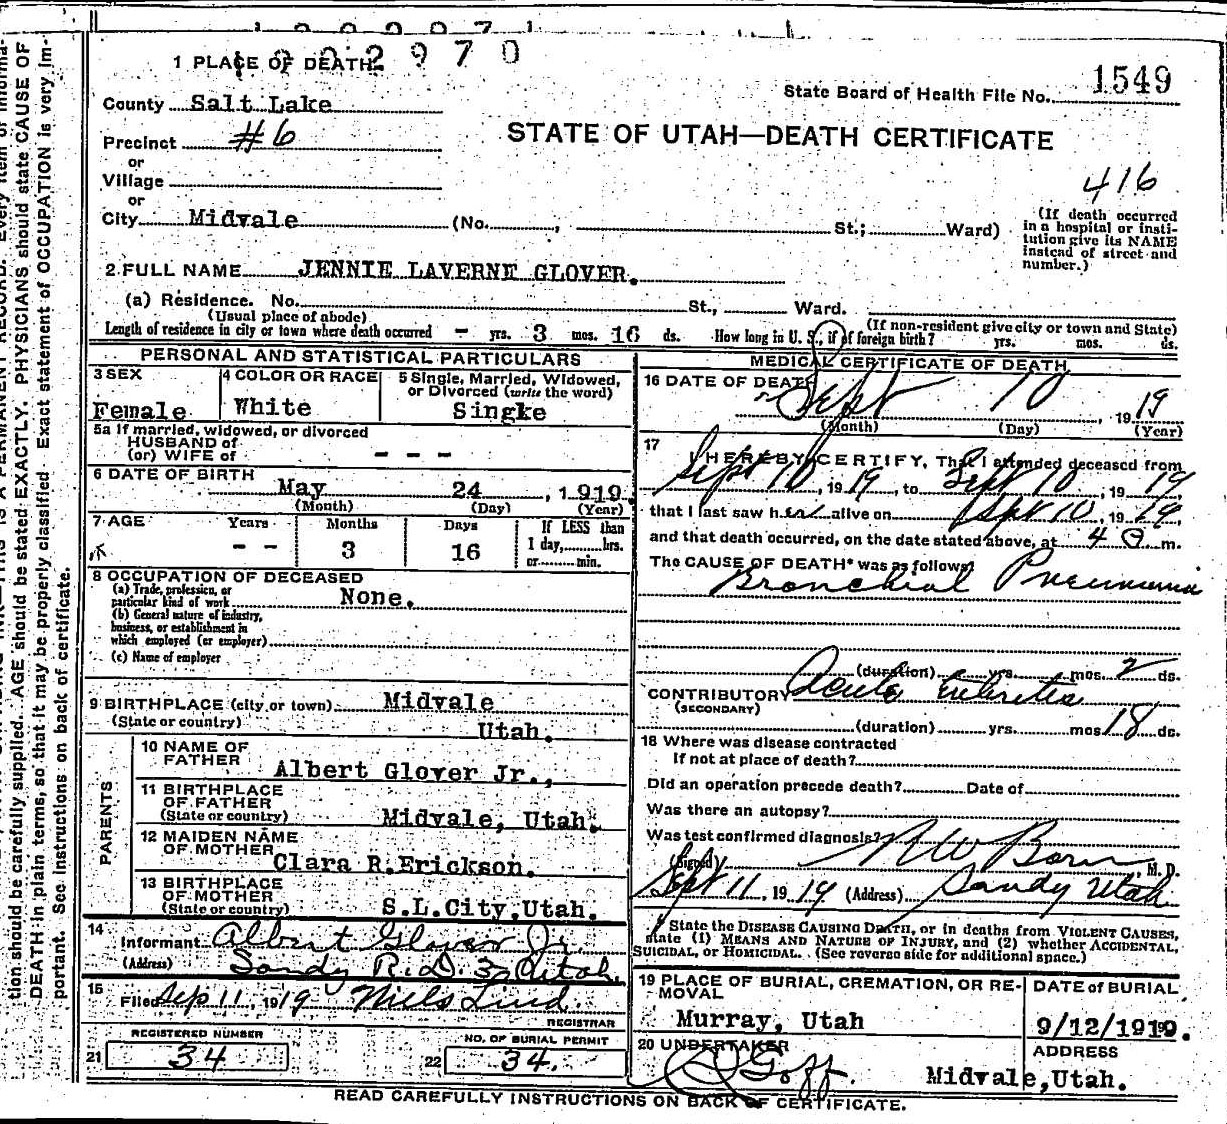 202970
1 PLACE OF DEATH
State Board of Health File No. 1549
County Salt Lake
STATE OF UTAH—DEATH CERTIFICATE
Precinct #6
or
Village
416
or
City Midvale (No. , St.; Ward)
(If death occurred
in a hospital or insti-
tution give its NAME
instead of street and
number.)
2 FULL NAME JENNIE LAVERNE GLOVER.
(a) Residence. No. St., Ward.
(Usual place of abode) (If non-resident give city or town and State)
Length of residence in city or town where death occurred - yrs. 3 mos. 16 ds. How long in U. S., if of foreign birth? yrs. mos. ds.
PERSONAL AND STATISTICAL PARTICULARS
3 SEX
Female
4 COLOR OR RACE
White
5 Single, Married, Widowed,
or Divorced (write the word)
Singke
5a If married, widowed, or divorced
HUSBAND of
(or) WIFE of - - -
6 DATE OF BIRTH
May 24 , 1919.
(Month) (Day) (Year)
7 AGE Years Months Days If LESS than
- - 3 16 1 day, hrs.
or min.
8 OCCUPATION OF DECEASED
(a) Trade, profession, or
particular kind of work None.
(b) General nature of industry,
business, or establishment in
which employed (or employer)
(c) Name of employer
9 BIRTHPLACE (city or town) Midvale
(State or country) Utah.
PARENTS
10 NAME OF
FATHER Albert Glover Jr.,
11 BIRTHPLACE
OF FATHER
(State or country) Midvale, Utah.
12 MAIDEN NAME
OF MOTHER Clara R.Erickson.
13 BIRTHPLACE
OF MOTHER
(State or country) S.L.City,Utah.
14
Informant Albert Glover Jr.
(Address) Sandy R.D. 3, Utah.
15
Filed Sep 11, 1919 Niels Lind.
REGISTRAR
REGISTERED NUMBER
21 34
NO. OF BURIAL PERMIT
22 34.
MEDICAL CERTIFICATE OF DEATH
16 DATE OF DEATH
Sept 10, 1919
(Month) (Day) (Year)
17 I HEREBY CERTIFY, That I attended deceased from
Sept 10, 1919, to Sept 10, 1919,
that I last saw her alive on Sept 10, 1919,
and that death occurred, on the date stated above, at 4 a m.
The CAUSE OF DEATH* was as follows:
Bronchial Pneumonia
(duration) yrs. mos. 2 ds.
CONTRIBUTORY Acute Enteritis
(SECONDARY)
(duration) yrs. mos. 18 ds.
18 Where was disease contracted
If not at place of death?
Did an operation precede death? Date of
Was there an autopsy?
Was test confirmed diagnosis?
(Signed) , M. D.
Sept 11, 1919 (Address) Sandy Utah
* State the DISEASE CAUSING DEATH, or in deaths from VIOLENT CAUSES,
state (1) MEANS AND NATURE OF INJURY, and (2) whether ACCIDENTAL,
SUICIDAL, or HOMICIDAL. (See reverse side for additional space.)
19 PLACE OF BURIAL, CREMATION, OR RE-
MOVAL
Murray, Utah
DATE of BURIAL
9/12/1919.
20 UNDERTAKER
Goff.
ADDRESS
Midvale,Utah.
READ CAREFULLY INSTRUCTIONS ON BACK OF CERTIFICATE.
tion should be carefully supplied. AGE should be stated EXACTLY. PHYSICIANS should state CAUSE OF
DEATH in plain terms, so that it may be properly classified. Exact statement of OCCUPATION is very im-
portant. See instructions on back of certificate.